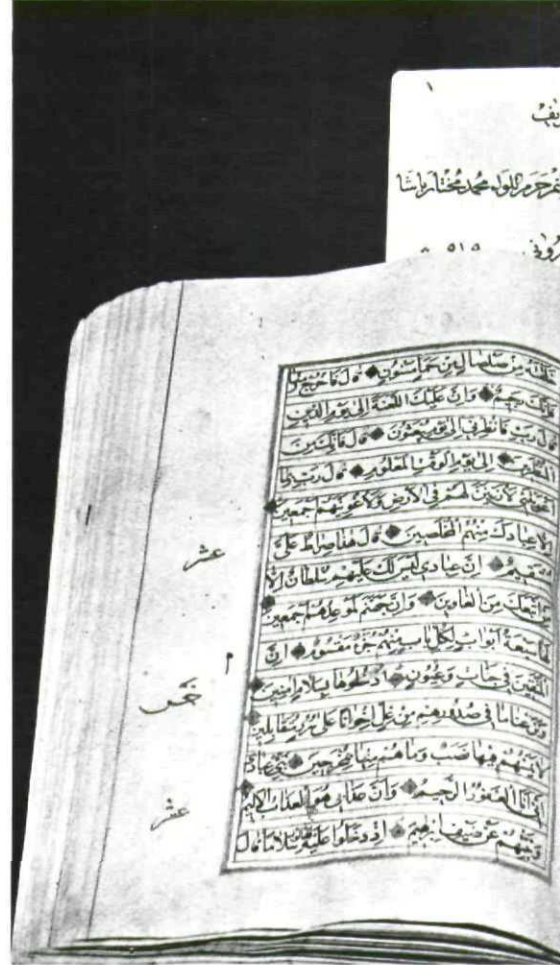 ١
اللواء محمد مختار باشا
خلقته من صلصال من حمإ مسنون قال فاخرج منها
فإنك رجيم وإن عليك اللعنة إلى يوم الدين
قال رب فأنظرني إلى يوم يبعثون قال فإنك من
المنظرين إلى يوم الوقت المعلوم قال رب بما
أغويتني لأزينن لهم في الأرض ولأغوينهم أجمعين
إلا عبادك منهم المخلصين قال هذا صراط علي
مستقيم إن عبادي ليس لك عليهم سلطان إلا
من اتبعك من الغاوين وإن جهنم لموعدهم أجمعين
لها سبعة أبواب لكل باب منهم جزء مقسوم إن
المتقين في جنات وعيون ادخلوها بسلام آمنين
ونزعنا ما في صدورهم من غل إخوانا على سرر متقابلين
لا يمسهم فيها نصب وما هم منها بمخرجين نبئ عبادي
أني أنا الغفور الرحيم وأن عذابي هو العذاب الأليم
ونبئهم عن ضيف إبرهيم إذ دخلوا عليه فقالوا سلاما قال
عشر
خمس
عشر